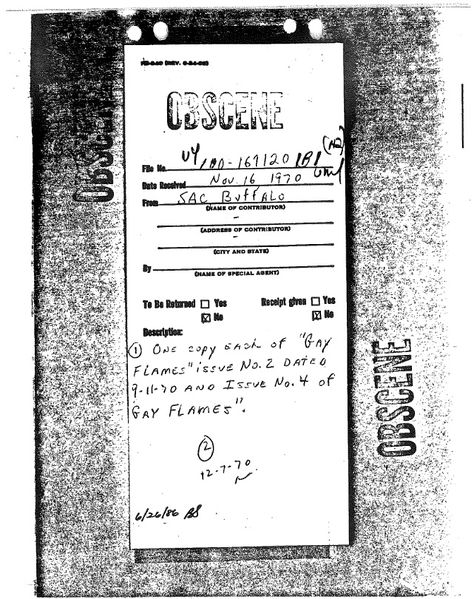 OBSCENE
File No. NY 100-167120 1B1
Date Received Nov. 16 1970
From SAC Buffalo
(NAME OF CONTRIBUTOR)
(ADDRESS OF CONTRIBUTOR)
(CITY AND STATE)
By
(NAME OF SPECIAL AGENT)
To Be Returned Yes Receipt given Yes
No No
Description:
① One copy each of "GAY
FLAMES" issue No. 2 DATED
9-11-70 AND Issue No. 4 of
GAY FLAMES".
②
12-7-70
6/26/86
OBSCENE
OBSCENE